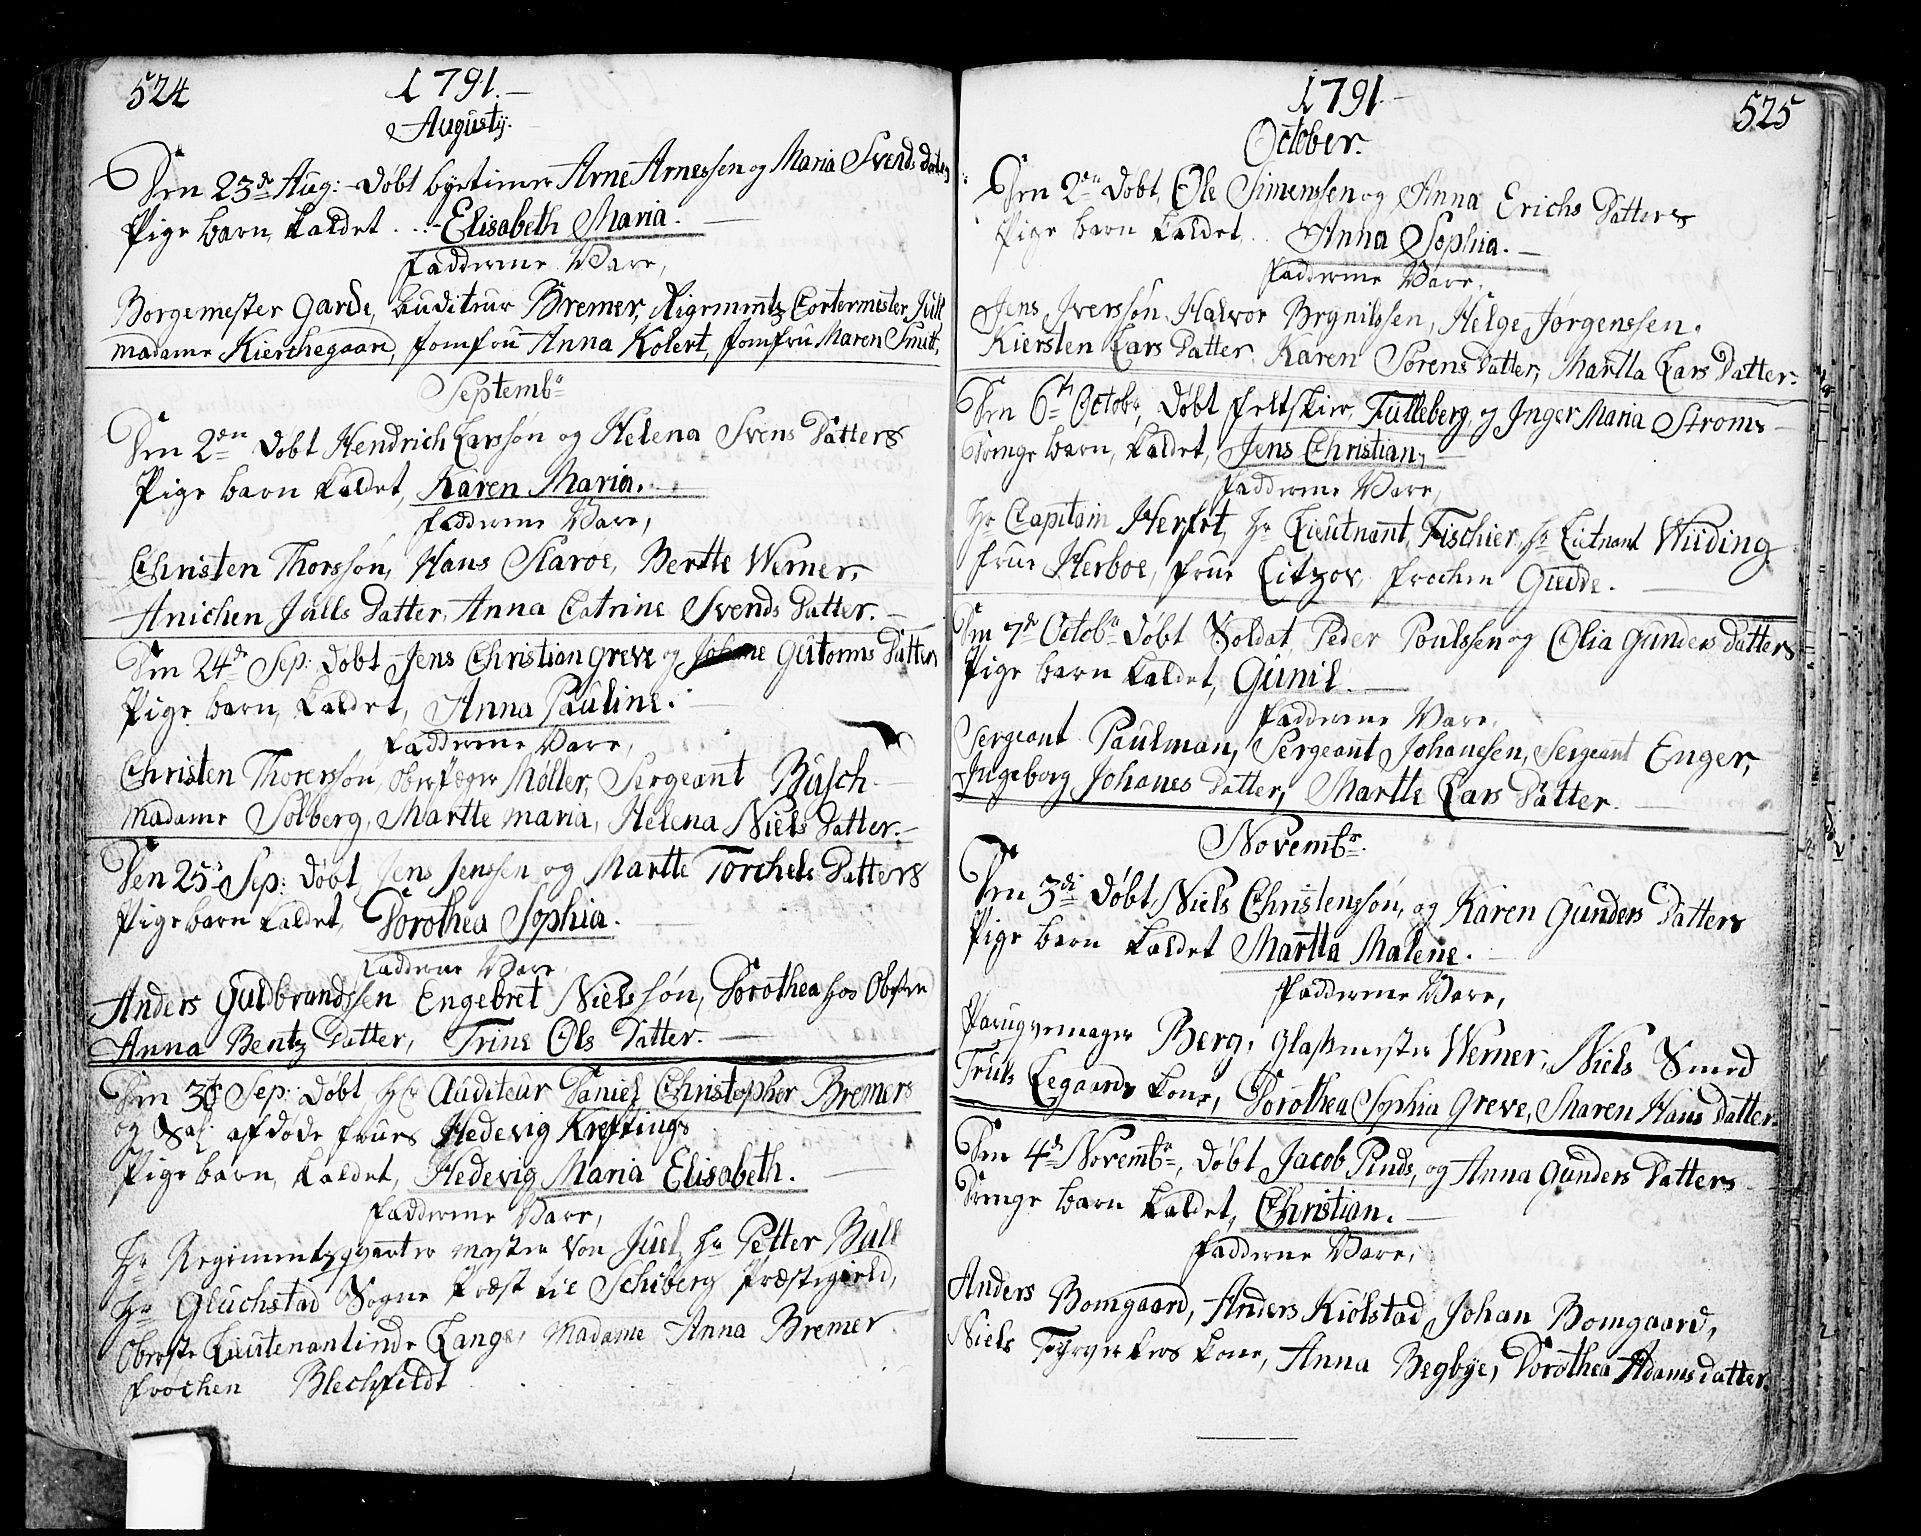 524
1791.
Augusty.
Den 23de Aug: Døbt Arne Arnessen og Maria Svends datters
Pige barn kaldet ... Elisabeth Maria.
Fadderne Vare,
Borgemester Garde, Auditeur Bremer, Regimentz Cortermester Jull
Madame Kierchegaard, Jomfru Anna Kolert, Jomfru Maren Smit,
Septembr
Den 2den Døbt Hendrich Larssøn og Helena Svens Datters
Pige barn kaldet, Karen Maria.
Fadderne Vare,
Christen Thorssøn, Hans Staroe, Berthe Werner,
Anichen Jülls Datter, Anna Catrine Svends Datter.
Den 24de Sep: Døbt Jens Christian Greve og Gutorms Datters
Pige barn, kaldet, Anna Pauline.
Fadderne Vare,
Christen Thorerssøn, Møller, Sergeant Busch
Madame Solberg, Marthe Maria, Helena Niels Datter.
Den 25de Sep: Døbt Jens Jenssen og Marthe Torchels Datters
Pige barn kaldet, Dorothea Sophia.
Fadderne Vare
Anders Guldbrandssen Engebret Nielssøn, Dorothea hos
Anna Bentz Datter, Trine Ols Datter.
Den 30te Sep: Døbt Hr Auditeur Daniel Christopher Bremers
og Sal. afdøde Frues Hedevig Kreftings
Pige barn, kaldet, Hedevig Maria Elisabeth.
Fadderne Vare,
Hr Regimentzqvarter mester Von Juel, Hr Petter Bull
Hr Gluchstad Sogne Præst til Schiberg Præstegield,
Oberste Lieutenantinde Lange, Madame Anna Bremer
Frøchen Blechfeldt
1791.
525
October.
Den 2den Døbt, Ole Simenssen og Anna Erichs Datters
Pige barn kaldet .. Anna Sophia.
Fadderne Vare,
Jens Iverssøn, Halvor Brynilssen, Helge Jørgenssen.
Kiersten Lars Datter, Karen Sørens Datter, Martha Lars Datter.
Den 6te Octobr, Døbt Feltskier Fulleberg og Inger Maria Stroms
Drenge barn, kaldet, Jens Christian,
Fadderne Vare,
Hr Capitain Herfet, Hr Lieutnant Fischier, Hr Liutnant Wiiding
Frue Herboe, Frue Litzov, Frøchen Gudde.
Den 7de Octobr Døbt Soldat Peder Poulssen og Olia Gunders Datters
Pige barn kaldet, Gunil.
Fadderne Vare,
Sergeant Paulman, Sergeant Johanesen, Sergeant Enger,
Ingeborg Johanes Datter, Marthe Lars Datter.
Novembr.
Den 3di Døbt, Niels Christenssøn, og Karen Gunders Datters
Pige barn kaldet Martha Malene.
Fadderne Vare,
Parugvemager Berg, Glasmester Werner, Niels Smed
Truls Legaards kone, Dorothea Sophia Greve, Maren Hans Datter.
Den 4de Novembr, Døbt Jacob Pinds, og Anna Gunders Datters
Drenge barn kaldet, Christian.
Fadderne Vare,
Anders Bomgaard, Anders Kiølstad, Johan Bomgaard,
Niels kone, Anna Begbye, Dorothea Adams datter.